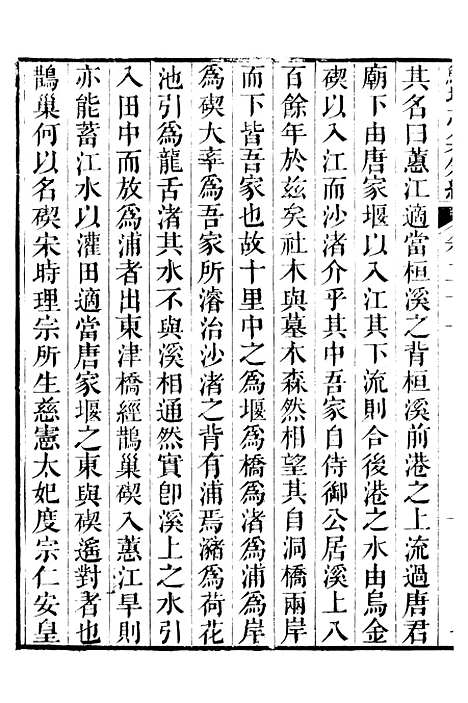 其名曰蕙江適當桓溪之背桓溪前港之上流過唐君
廟下由唐家堰以入江其下流則合後港之水由烏金
碶以入江而沙渚介乎其中吾家自侍御公居溪上八
百餘年於兹矣社木與墓木森然相望其自洞橋兩岸
而下皆吾家也故十里中之爲堰爲橋爲渚爲浦爲岸
爲碶大率爲吾家所濬治沙渚之背有浦焉瀦爲荷花
池引爲龍舌渚其水不與溪相通然實卽溪上之水引
入田中而放爲浦者出東津橋經鵲巢碶入蕙江旱則
亦能蓄江水以灌田適當唐家堰之東與碶遙對者也
鵲巢何以名碶宋時理宗所生慈憲太妃度宗仁安皇